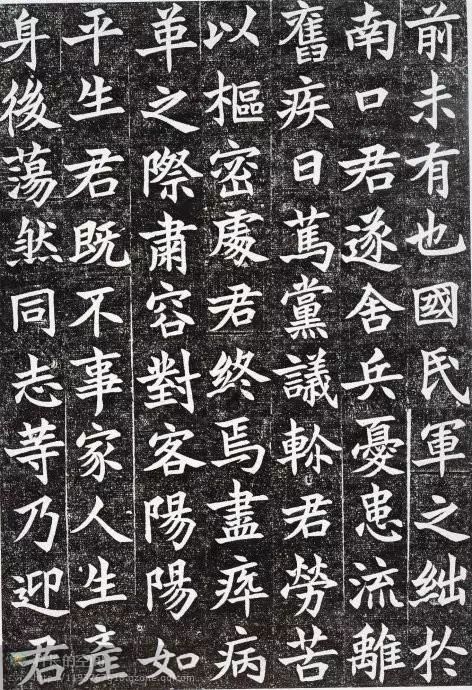 前未有也國民軍之絀於
南口君遂舍兵憂患流離
舊疾日篤黨議軫君勞苦
以樞密處君終焉盡瘁病
革之際肅容對客陽陽如
平生君既不事家人生產
身後蕩然同志等乃迎君